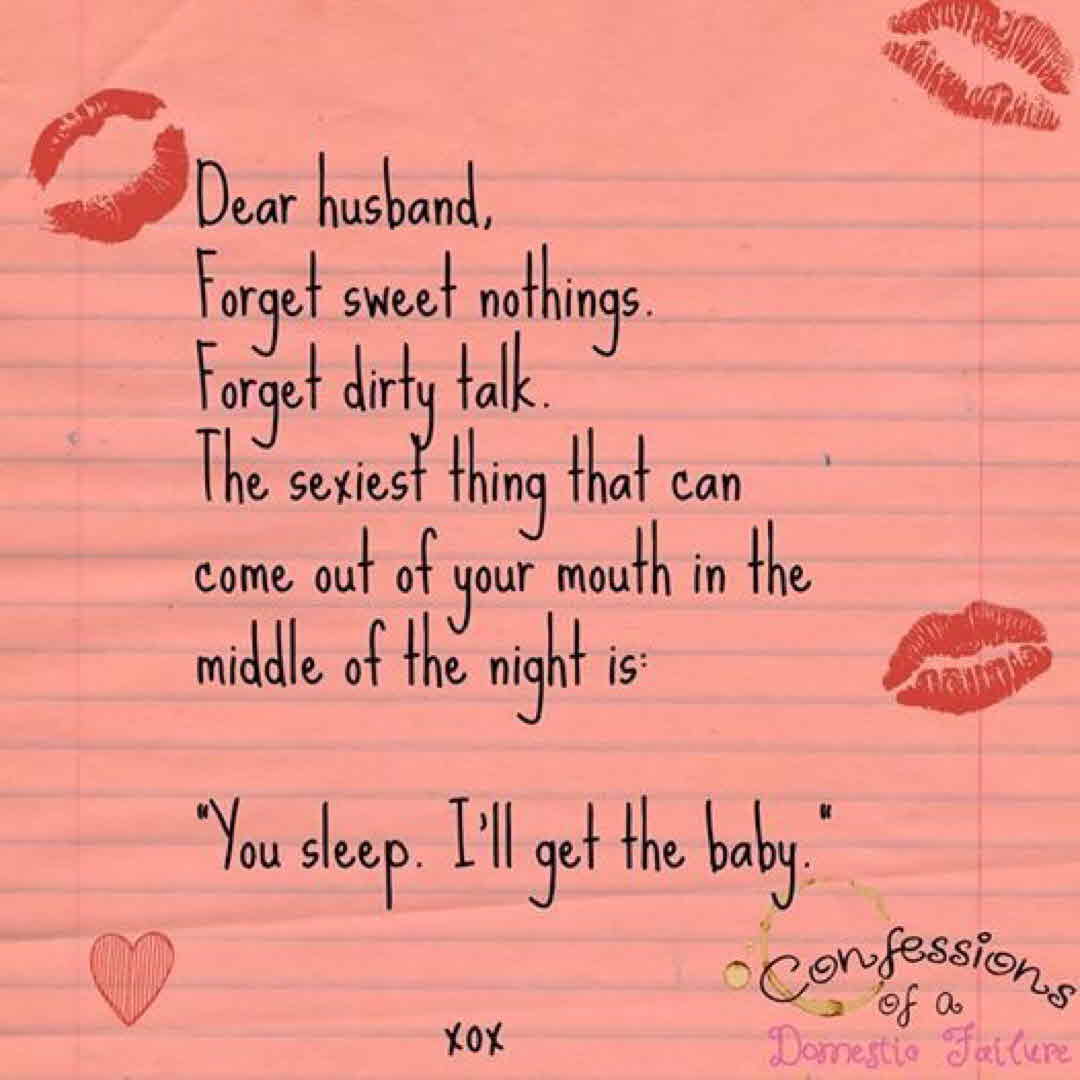 Dear husband,
Forget sweet nothings.
Forget dirty talk.
The sexiest thing that can
come out of your mouth in the
middle of the night is:
"You sleep. I'll get the baby."
Confessions
of a
Domestic Failure
xox